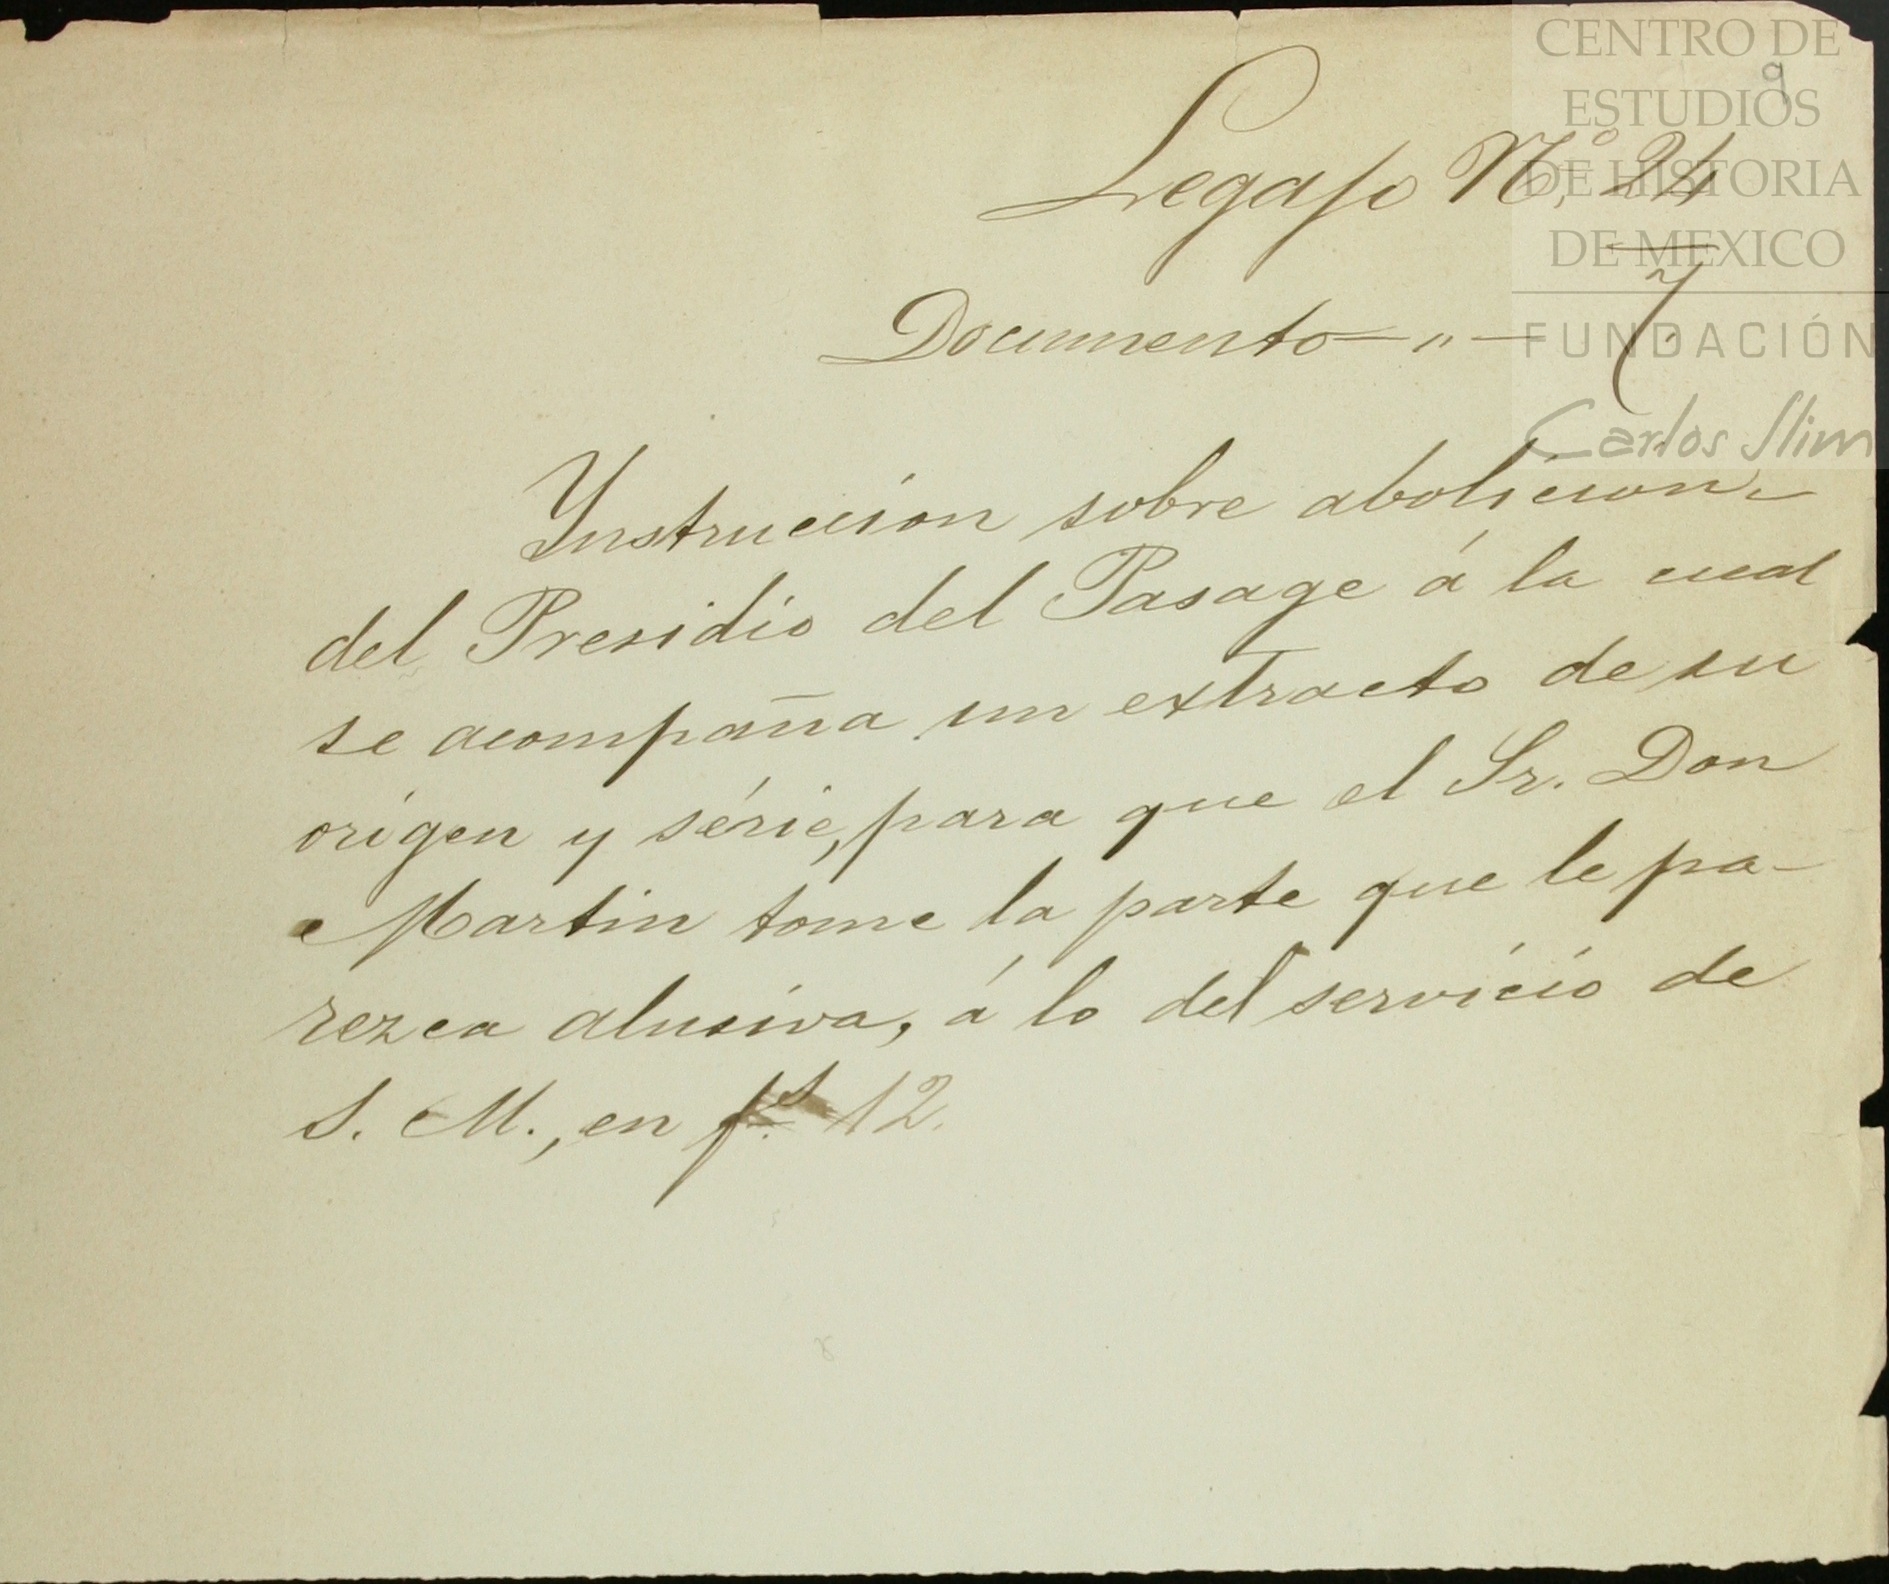 CENTRO DE
ESTUDIOS
DE HISTORIA
DE MEXICO
FUNDACIÓN
Carlos Slim
9
Legajo N.º 24
Documento — " — 7.
Ynstruccion sobre abolicion
del Presidio del Pasage á la cual
se acompaña un extracto de su
orígen y série, para que el Sr. Don
Martin tome la parte que le pa-
rezca alusiva, á lo del servicio de
S. M., en fs. 12.